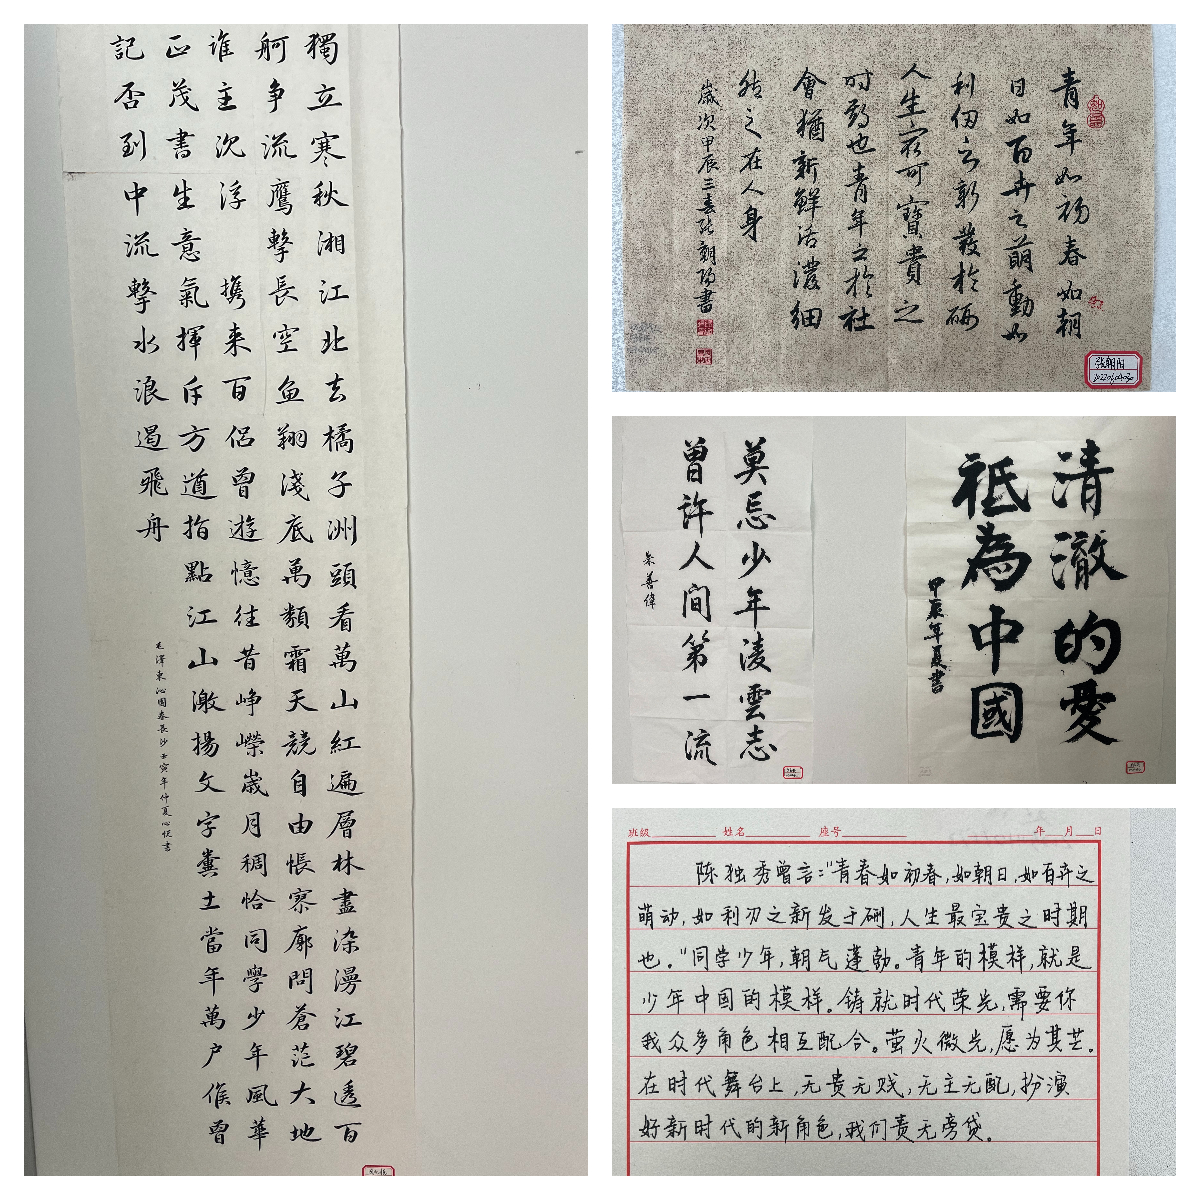 獨立寒秋湘江北去橘子洲頭看萬山紅遍層林盡染漫江碧透百
舸争流鷹擊長空鱼翔淺底萬類霜天競自由悵寥廓問蒼茫大地
谁主沉浮 携来百侣曾遊憶往昔峥嶸歲月稠恰同學少年風華
正茂書生意氣揮斥方遒指點江山激揚文字糞土當年萬户侯曾
記否到中流擊水浪遏飛舟
毛澤東沁園春長沙壬寅年仲夏心悦書
青年如初春如朝
日如百卉之萌動如
利刃之新發於硎
人生最可寶貴之
时期也青年之於社
會猶新鮮活潑細
胞之在人身
歲次甲辰三春张朝陽書
张朝阳
清澈的愛
祗為中國
甲辰年夏書
莫忘少年淩雲志
曾许人间第一流
朱善偉
班级 姓名 座号 年 月 日
陈独秀曾言:“青春如初春,如朝日,如百卉之
萌动,如利刃之新发于硎,人生最宝贵之时期
也。”同学少年,朝气蓬勃。青年的模样,就是
少年中国的模样。铸就时代荣光,需要你
我众多角色相互配合。萤火微光,愿为其芒。
在时代舞台上,无贵无贱,无主无配,扮演
好新时代的新角色,我们责无旁贷。